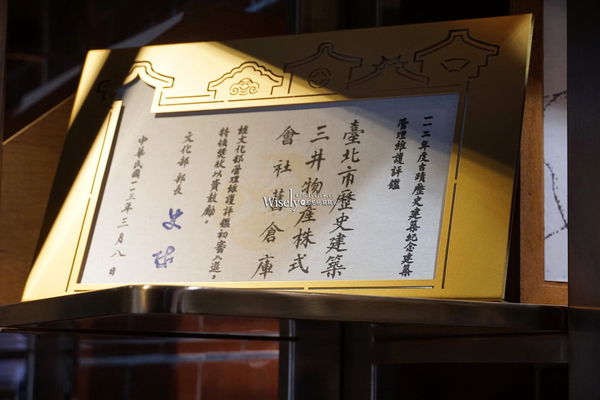 一一二年度古蹟歷史建築紀念建築
管理維護評鑑
臺北市歷史建築
三井物產株式
會社舊倉庫
經文化部管理維護評鑑初審入選，
特頒獎狀以資鼓勵。
文化部 部長 史哲
中華民國一一三年三月八日
Wisely